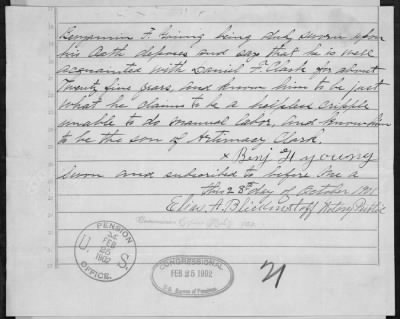 Benjamin F. Young being duly sworn upon
his Oath deposes and say that he is well
acquainted with Daniel F. Clark for about
Twenty five years, and known him to be just
what he claims to be a helpless cripple
unable to do manual labor, and known him
to be the son of Artimacy Clark.
x Benj F young
Sworn and subscribed to before me a
this 28th day of October 1901
Elias A. Blickenstaff Notary Public
Commission
PENSION
FEB
25
1902
U. S.
OFFICE.
CONGRESSIONAL
FEB 25 1902
U.S. Bureau of Pensions
21